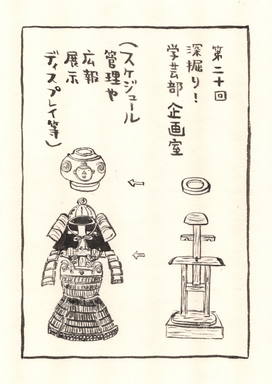 第二十回
深掘り！
学芸部 企画室
（スケジュール
管理や
広報
展示
ディスプレイ等）